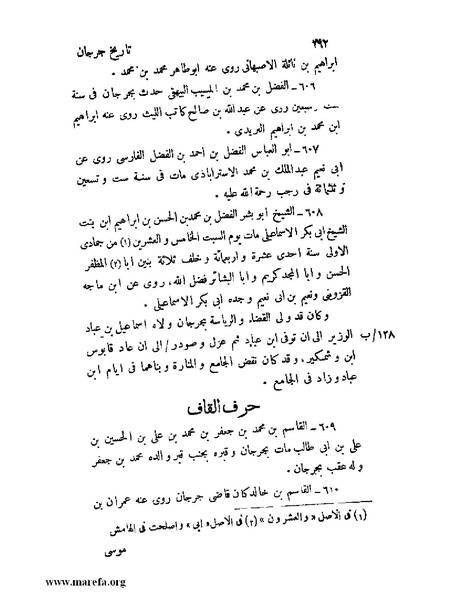 ٢٩٢ تاريخ جرجان
ابراهيم بن نائلة الاصبهانى روى عنه ابوطاهر محمد بن محمد .
٦٠٦ــ الفضل بن محمد بن المسيب البيهقى حدث بجرجان فى سنة
ست وسبعين روى عن عبدالله بن صالح كاتب الليث روى عنه ابراهيم
ابن محمد بن ابراهيم العريدى .
٦٠٧ــ ابو العباس الفضل بن احمد بن الفضل الفارسى روى عن
ابى نعيم عبدالملك بن محمد الاستراباذى مات فى سنة ست وتسعين
و ثلثمائة فى رجب رحمة الله عليه .
٦٠٨ــ الشيخ أبو بشر الفضل بن محمدبن الحسن بن ابراهيم ابن بنت
الشيخ ابى بكر الاسماعيلى مات يوم السبت الخامس و العشرين (١) من جمادى
الاولى سنة احدى عشرة و اربعمائة و خلف ثلاثة بنين ابا (٢) المظفر
الحسن و ابا المجد كريم و ابا البشائر فضل الله، روى عن ابن ماجه
القزوينى ونعيم بن ابى نعيم و جده ابى بكر الاسماعيلى .
وكان قد ولى القضاء و الرياسة بجرجان ولاه اسماعيل بن عباد
١٢٨/ب الوزير الى ان توفى ابن عباد ثم عزل و صودر / الى ان عاد قابوس
ابن وشمكير، و قد كان نقض الجامع و المنارة و بناهما فى ايام ابن
عباد و زاد فى الجامع .
حرف القاف
٦٠٩ــ القاسم بن محمد بن جعفر بن محمد بن على بن الحسين بن
على بن ابى طالب مات بجرجان و قبره بجنب قبر والده محمد بن جعفر
و له عقب بجرجان .
٦١٠ــ القاسم بن خالد كان قاضى جرجان روى عنه عمران بن
(١) فى الاصل « والعشرون » (٢) فى الاصل « ابى » واصلحت فى الهامش
موسى
www.marefa.org